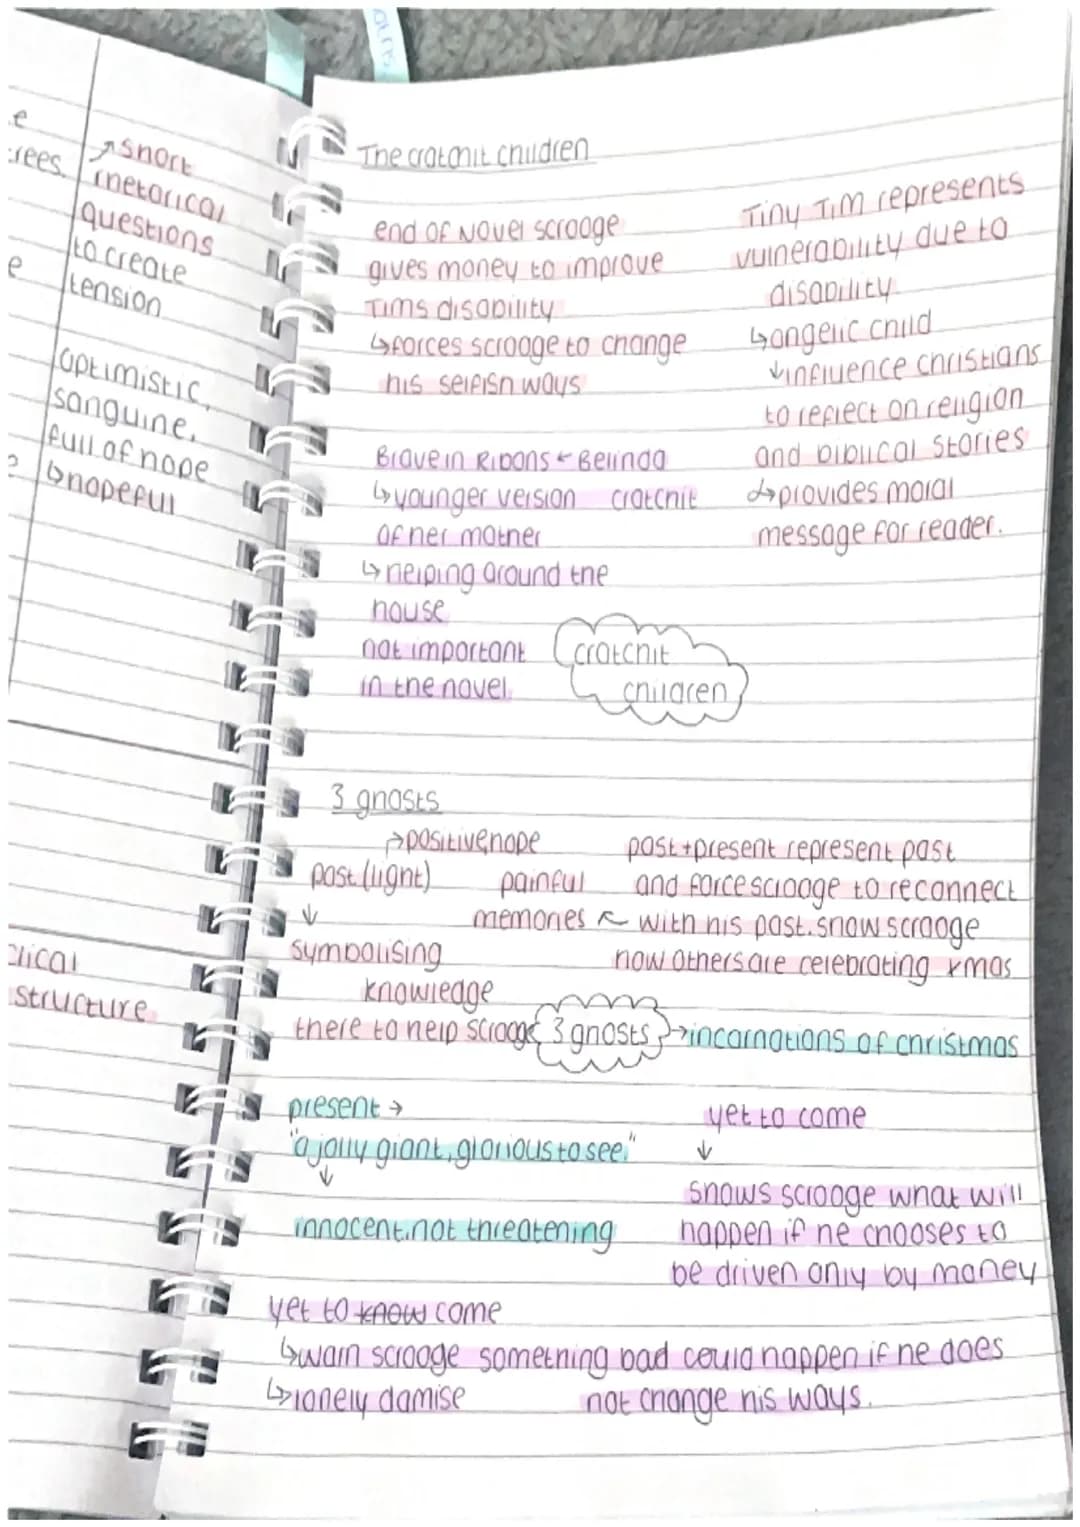 e
rees.
↗ short
rhetorical
questions
to create
tension
e
optimistic,
sanguine,
full of hope
↳hopeful
clical
structure
The cratchit children
end of Novel scrooge
gives money to improve
Tims disability
↳forces scrooge to change
his selfish ways
Tiny Tim represents
vulnerability due to
disability.
↳angelic child
↓influence christians
to reflect on religion
and biblical stories
↳provides moral
message for reader.
Brave in Ribons ← Belinda
↳younger version cratchit
of her mother
↳helping around the
house
not important
in the novel.
cratchit
children
3 ghosts
→positive, hope
past (light)
↓
symbolising
knowledge
there to help scrooge
painful
memories ↖
past + present represent past
and force scrooge to reconnect
with his past. show scrooge
how others are celebrating xmas
3 ghosts →incarnations of christmas
present →
"a jolly giant, glorious to see."
↓
innocent, not threatening
yet to come
↓
shows scrooge what will
happen if he chooses to
be driven only by money
yet to know come
↳warn scrooge something bad could happen if he does
not change his ways.
↳lonely damise